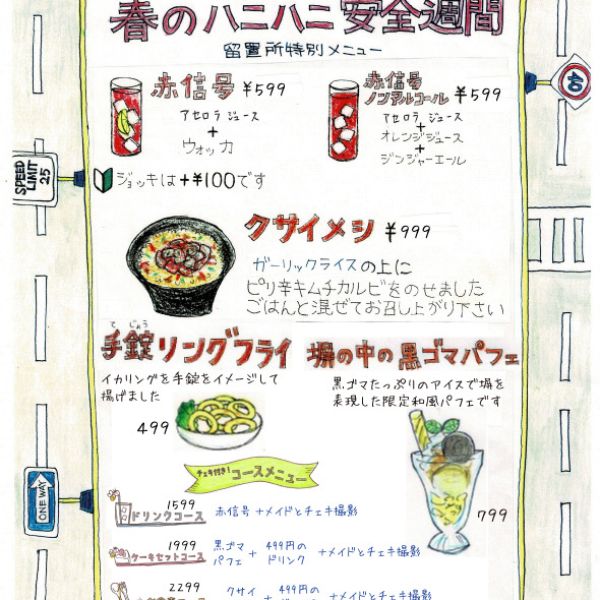 春のハニハニ安全週間
留置所特別メニュー
赤信号 ¥599
アセロラ ジュース
+
ウォッカ
赤信号
ノンアルコール ¥599
アセロラ ジュース
+
オレンジジュース
+
ジンジャーエール
ジョッキは+¥100です
SPEED
LIMIT
25
40
クサイメシ ¥999
ガーリックライスの上に
ピリ辛キムチカルビをのせました
ごはんと混ぜてお召し上がり下さい
て じょう
手錠リングフライ
イカリングを手錠をイメージして
揚げました
499
塀の中の黒ゴマパフェ
黒ゴマたっぷりのアイスで塀を
表現した限定和風パフェです
799
チェキ付き!コースメニュー
ONE WAY
1599
ドリンクコース 赤信号 +メイドとチェキ撮影
1999
ケーキセットコース 黒ゴマパフェ + 499円のドリンク +メイドとチェキ撮影
2299
クサイ + 499円の +メイドとチェキ撮影